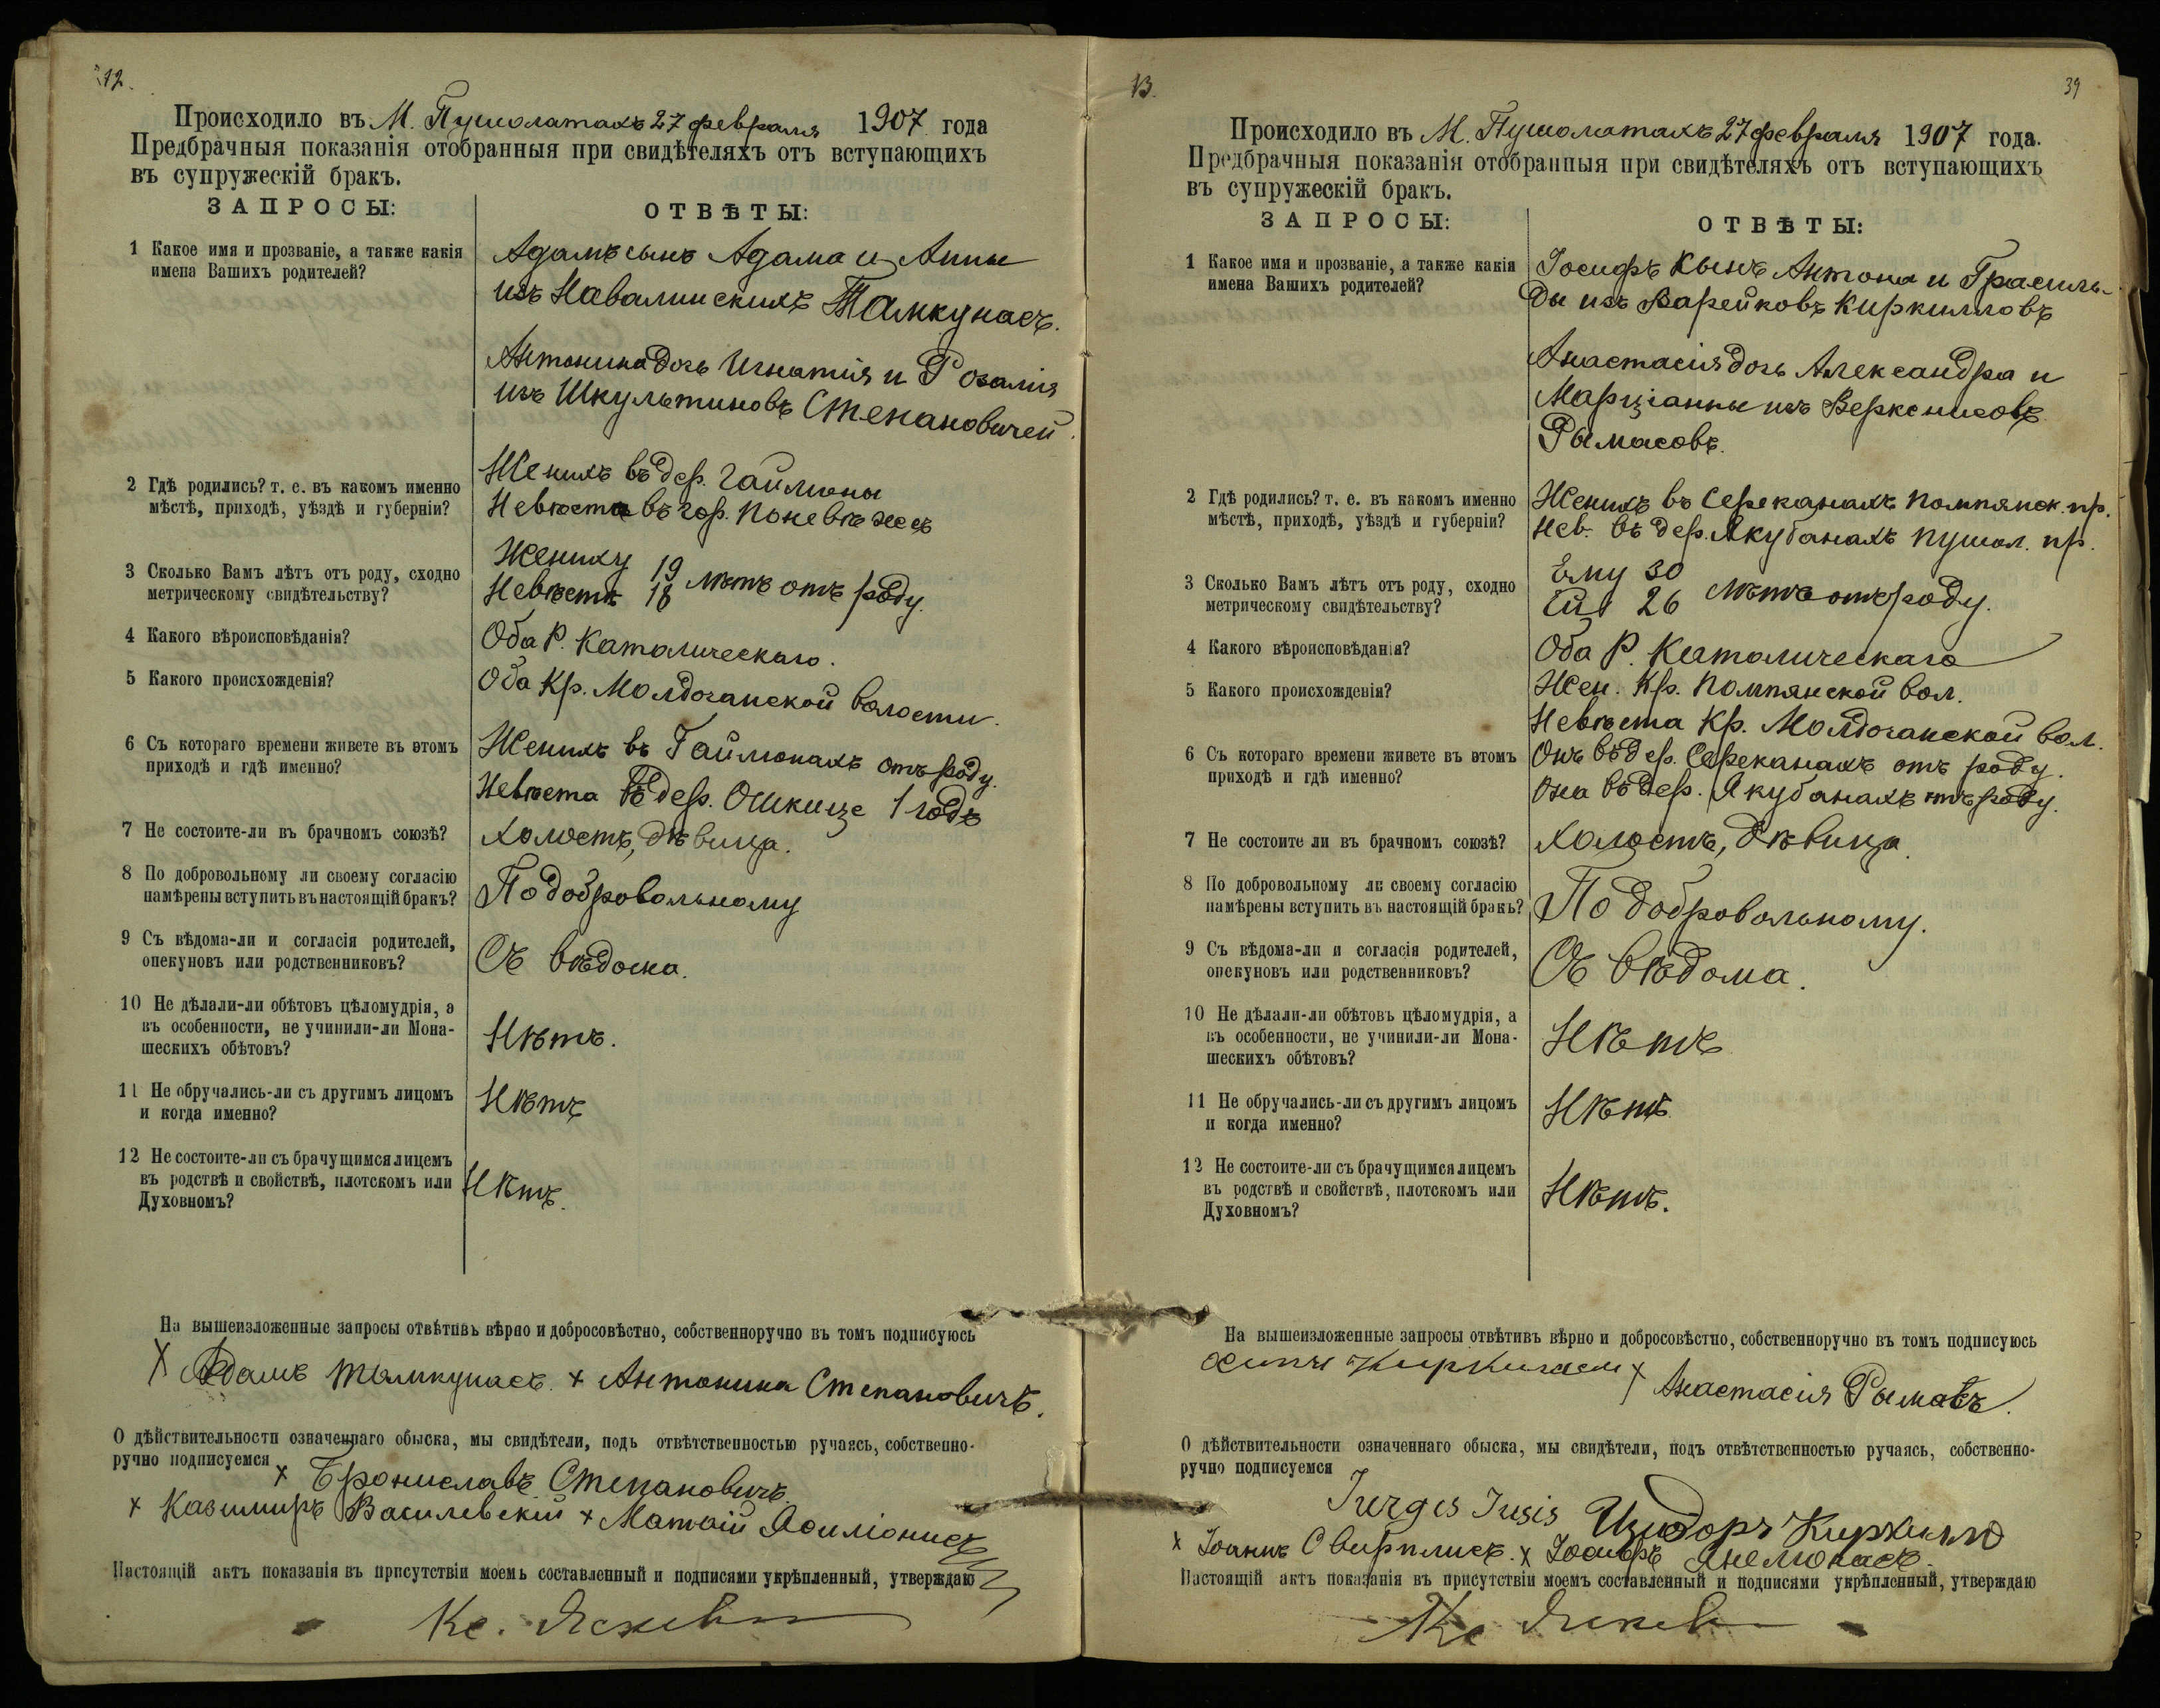 12.
Происходило въ М. Пушолатахъ 27 февраля 1907 года
Предбрачныя показанія отобранныя при свидѣтеляхъ отъ вступающихъ
въ супружескій бракъ.
ЗАПРОСЫ:
ОТВѢТЫ:
1 Какое имя и прозваніе, а также какія
имена Вашихъ родителей?
Адамъ сынъ Адама и Анны
изъ Навалинскихъ Тамкунасъ.
Антонина дочь Игнатія и Розалія
изъ Шкультиновъ Степановичей.
2 Гдѣ родились? т. е. въ какомъ именно
мѣстѣ, приходѣ, уѣздѣ и губерніи?
Женихъ въ дер. Гайлюны
Невѣста въ гор. Поневѣжеѣ
3 Сколько Вамъ лѣтъ отъ роду, сходно
метрическому свидѣтельству?
Жениху 19
Невѣстѣ 18 лѣтъ отъ роду.
4 Какого вѣроисповѣданія?
Оба Р. Католическаго.
5 Какого происхожденія?
Оба Кр. Молдочанской волости.
6 Съ котораго времени живете въ этомъ
приходѣ и гдѣ именно?
Женихъ въ Гайлюнахъ отъ роду.
Невѣста въ дер. Ошкице 1 годъ
7 Не состоите-ли въ брачномъ союзѣ?
Холостъ, дѣвица.
8 По добровольному ли своему согласію
намѣрены вступить въ настоящій бракъ?
По добровольному
9 Съ вѣдома-ли и согласія родителей,
опекуновъ или родственниковъ?
Съ вѣдома.
10 Не дѣлали-ли обѣтовъ цѣломудрія, а
въ особенности, не учинили-ли Мона-
шескихъ обѣтовъ?
Нѣтъ.
11 Не обручались-ли съ другимъ лицомъ
и когда именно?
Нѣтъ
12 Не состоите-ли съ брачущимся лицемъ
въ родствѣ и свойствѣ, плотскомъ или
Духовномъ?
Нѣтъ.
На вышеизложенные запросы отвѣтивъ вѣрно и добросовѣстно, собственноручно въ томъ подписуюсь
X Адамъ Тамкунасъ. + Антонина Степановичъ.
О дѣйствительности означеннаго обыска, мы свидѣтели, подъ отвѣтственностью ручаясь, собственно-
ручно подписуемся
x Брониславъ Степановичъ
x Казимиръ Василевскій + Матвій Ясиліонисъ
Настоящій актъ показанія въ присутствіи моемъ составленный и подписями укрѣпленный, утверждаю
Кс.
13.
39
Происходило въ М. Пушолатахъ 27 февраля 1907 года.
Предбрачныя показанія отобранныя при свидѣтеляхъ отъ вступающихъ
въ супружескій бракъ.
ЗАПРОСЫ:
ОТВѢТЫ:
1 Какое имя и прозваніе, а также какія
имена Вашихъ родителей?
Іосифъ сынъ Антона и Грасиль-
ды изъ Варейковъ Киркилловъ
Анастасія дочь Александра и
Марціанны изъ
Рымасовъ.
2 Гдѣ родились? т. е. въ какомъ именно
мѣстѣ, приходѣ, уѣздѣ и губерніи?
Женихъ въ Середканахъ Помпянск. пр.
Нев. въ дер. Якубанахъ пушол. пр.
3 Сколько Вамъ лѣтъ отъ роду, сходно
метрическому свидѣтельству?
Ему 30
Ей 26 лѣтъ отъ роду.
4 Какого вѣроисповѣданія?
Оба Р. Католическаго
5 Какого происхожденія?
Жен. Кр. Помпянской вол.
Невѣста Кр. Молдочанской вол.
6 Съ котораго времени живете въ этомъ
приходѣ и гдѣ именно?
Онъ въ дер. Середканахъ отъ роду.
Она въ дер. Якубанахъ отъ роду.
7 Не состоите ли въ брачномъ союзѣ?
Холостъ, дѣвица.
8 По добровольному ли своему согласію
намѣрены вступить въ настоящій бракъ?
По добровольному.
9 Съ вѣдома-ли и согласія родителей,
опекуновъ или родственниковъ?
Съ вѣдома.
10 Не дѣлали-ли обѣтовъ цѣломудрія, а
въ особенности, не учинили-ли Мона-
шескихъ обѣтовъ?
Нѣтъ
11 Не обручались-ли съ другимъ лицомъ
и когда именно?
Нѣтъ
12 Не состоите-ли съ брачущимся лицемъ
въ родствѣ и свойствѣ, плотскомъ или
Духовномъ?
Нѣтъ.
На вышеизложенные запросы отвѣтивъ вѣрно и добросовѣстно, собственноручно въ томъ подписуюсь
x Анастасія Рымасъ.
О дѣйствительности означеннаго обыска, мы свидѣтели, подъ отвѣтственностью ручаясь, собственно-
ручно подписуемся
Jurgis Jusis Изидоръ Киркилло
x Іоаннъ Свирплисъ. x Іосифъ Янелюнасъ.
Настоящій актъ показанія въ присутствіи моемъ составленный и подписями укрѣпленный, утверждаю
Кс